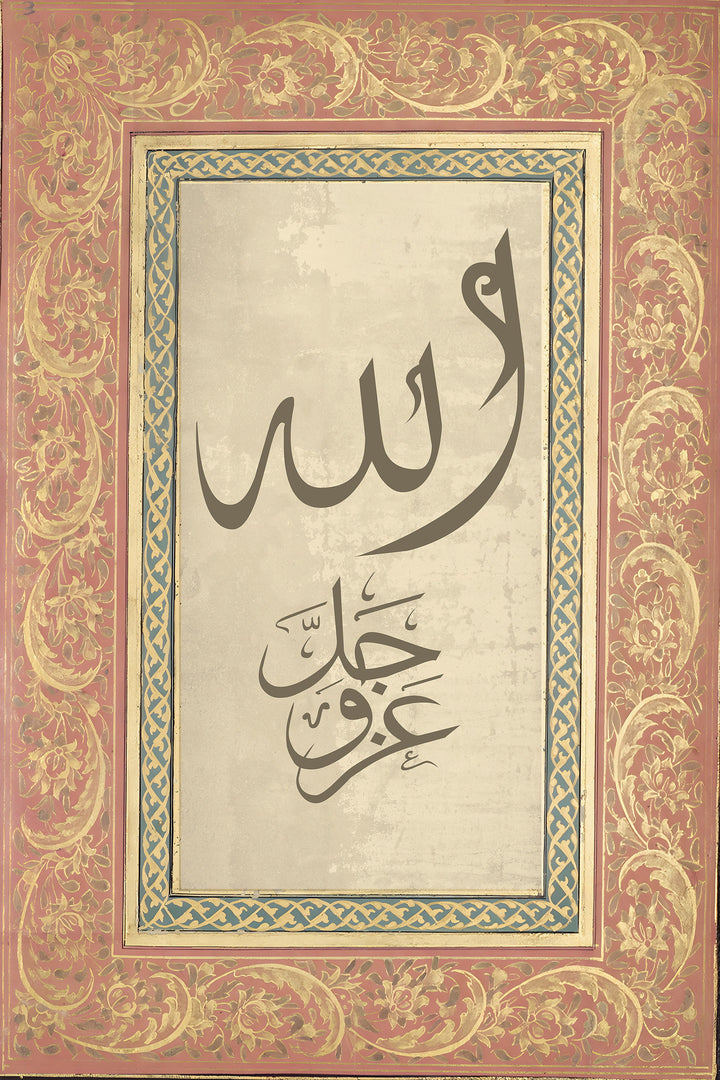 الله
عز وجلَّ
3